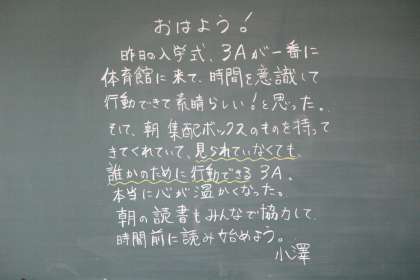 おはよう!
昨日の入学式、3Aが一番に
体育館に来て、時間を意識して
行動できて素晴らしい!と思った。
そして、朝 集配ボックスのものを持って
きてくれていて、見られていなくても
誰かのために行動できる3A。
本当に心が温かくなった。
朝の読書もみんなで協力して、
時間前に読み始めよう。
小澤